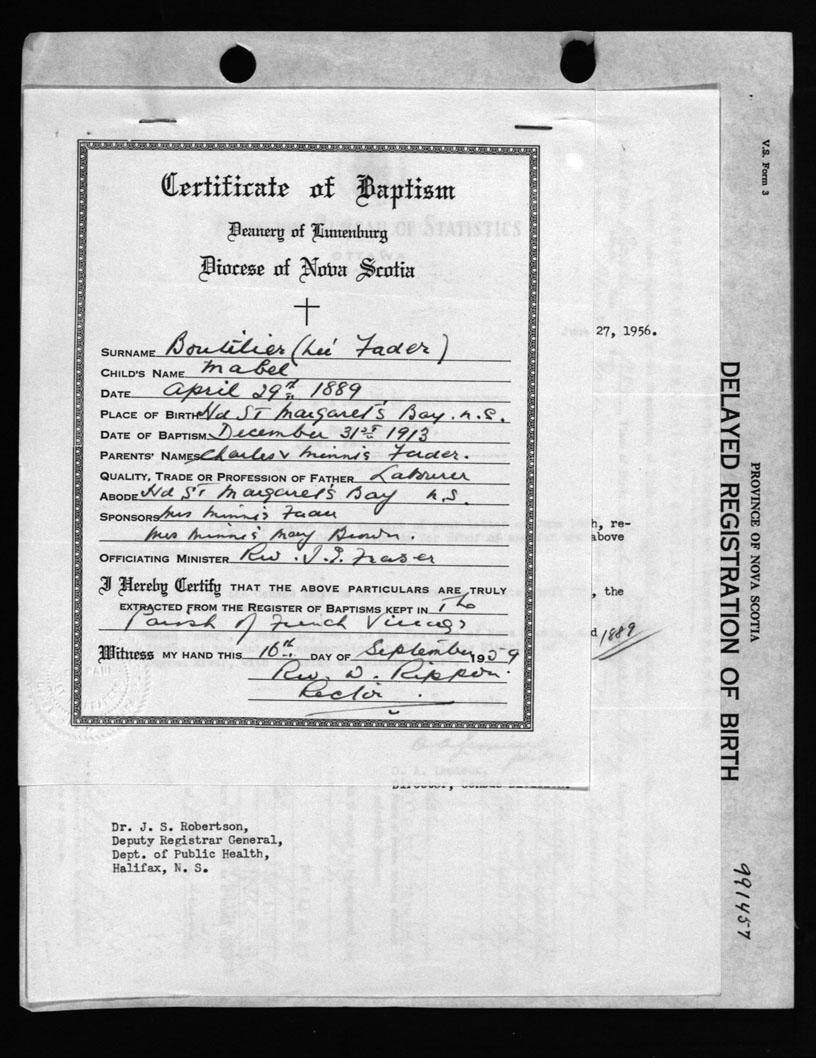 Certificate of Baptism
Deanery of Lunenburg
Diocese of Nova Scotia
SURNAME Boutilier (neé Fader)
CHILD'S NAME Mabel
DATE April 29th 1889
PLACE OF BIRTH Hd St Margaret's Bay. N.S.
DATE OF BAPTISM December 31st 1913
PARENTS' NAMES Charles & Minnis Fader.
QUALITY, TRADE OR PROFESSION OF FATHER Labourer
ABODE Hd St Margaret's Bay N.S.
SPONSORS Mrs Minnis Fader
Mrs Minnis Mary Brown.
OFFICIATING MINISTER Rev. J. Fraser
I Hereby Certify THAT THE ABOVE PARTICULARS ARE TRULY
EXTRACTED FROM THE REGISTER OF BAPTISMS KEPT IN The
Parish of French Village
Witness MY HAND THIS 10th DAY OF September 1959
Rev. W. Rippon.
Rector.
BUREAU OF STATISTICS
OTTAWA
27, 1956.
h, re-
above
, the
d 1889
Director, Census Division.
Dr. J. S. Robertson,
Deputy Registrar General,
Dept. of Public Health,
Halifax, N. S.
V.S. Form 3
PROVINCE OF NOVA SCOTIA
DELAYED REGISTRATION OF BIRTH
991457